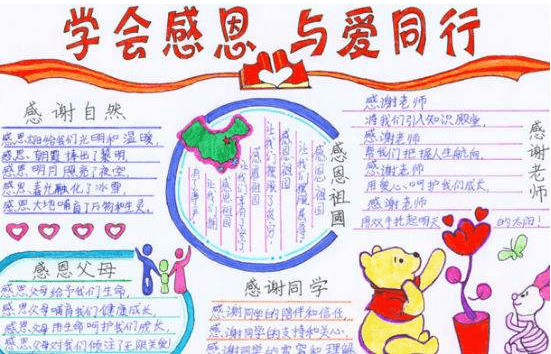 学会感恩 与爱同行
感谢自然
感恩阳光给我们光明和温暖,
感恩朝霞捧出了黎明,
感恩明月照亮了夜空,
感恩春光融化了冰雪,
感恩大地哺育了万物和生灵,
感恩祖国
感恩祖国
让我们摆脱了
感恩祖国
感恩祖国
感恩祖国
感谢老师
感谢老师
将我们引入知识殿堂,
感谢老师
帮我们把握人生航向,
感谢老师
用爱心呵护我们成长,
感谢老师
用双手托起明天的太阳!
感恩父母
感恩父母给予我们生命,
感恩父母哺育我们健康成长,
感恩父母用生命呵护我们成长,
感恩父母对我们倾注了无限关爱!
感谢同学
感谢同学的陪伴和信任,
感谢同学的支持和关心,
感谢同学的宽容和理解